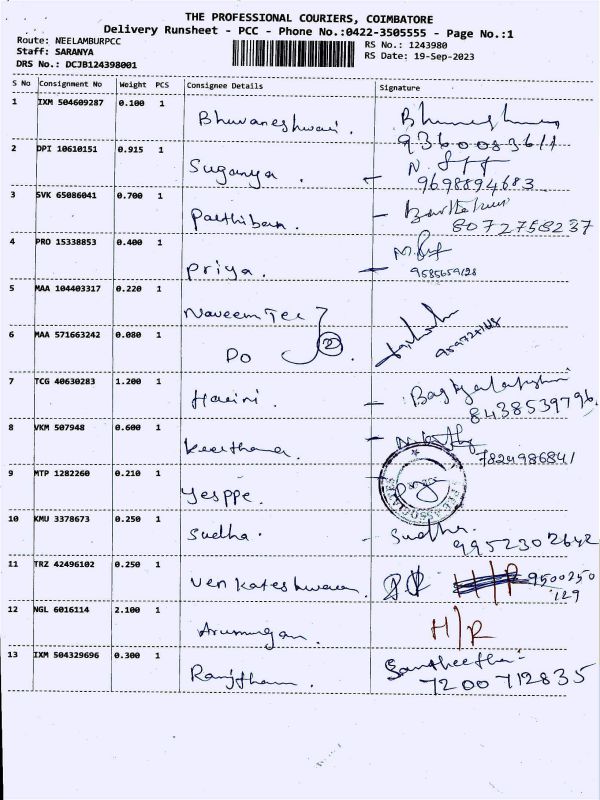 THE PROFESSIONAL COURIERS, COIMBATORE
Delivery Runsheet - PCC - Phone No.:0422-3505555 - Page No.:1
Route: NEELAMBURPCC
Staff: SARANYA
DRS No.: DCJB124398001
RS No.: 1243980
RS Date: 19-Sep-2023
S No Consignment No Weight PCS Consignee Details Signature
1 IXM 504609287 0.100 1 Bhuvaneshwari.
9360083611
2 DPI 10610151 0.915 1 Suganya.
9698894683
3 SVK 65086041 0.700 1 Parthiban.
8072758237
4 PRO 15338853 0.400 1 Priya.
9585659128
5 MAA 104403317 0.220 1 Naveem Tec
6 MAA 571663242 0.080 1 Do 2
7 TCG 40630283 1.200 1 Harini.
8438539796.
8 VKM 507948 0.600 1 Keerthana.
7824986841
9 MTP 1282260 0.210 1 Yesppe.
10 KMU 3378673 0.250 1 Sudha. - Sudha.
9952302642
11 TRZ 42496102 0.250 1 Venkateshwaran H/R 9500250
129
12 NGL 6016114 2.100 1 Arumugan. H/R
13 IXM 504329696 0.300 1 Ranjitham. Santheetha
7200712835